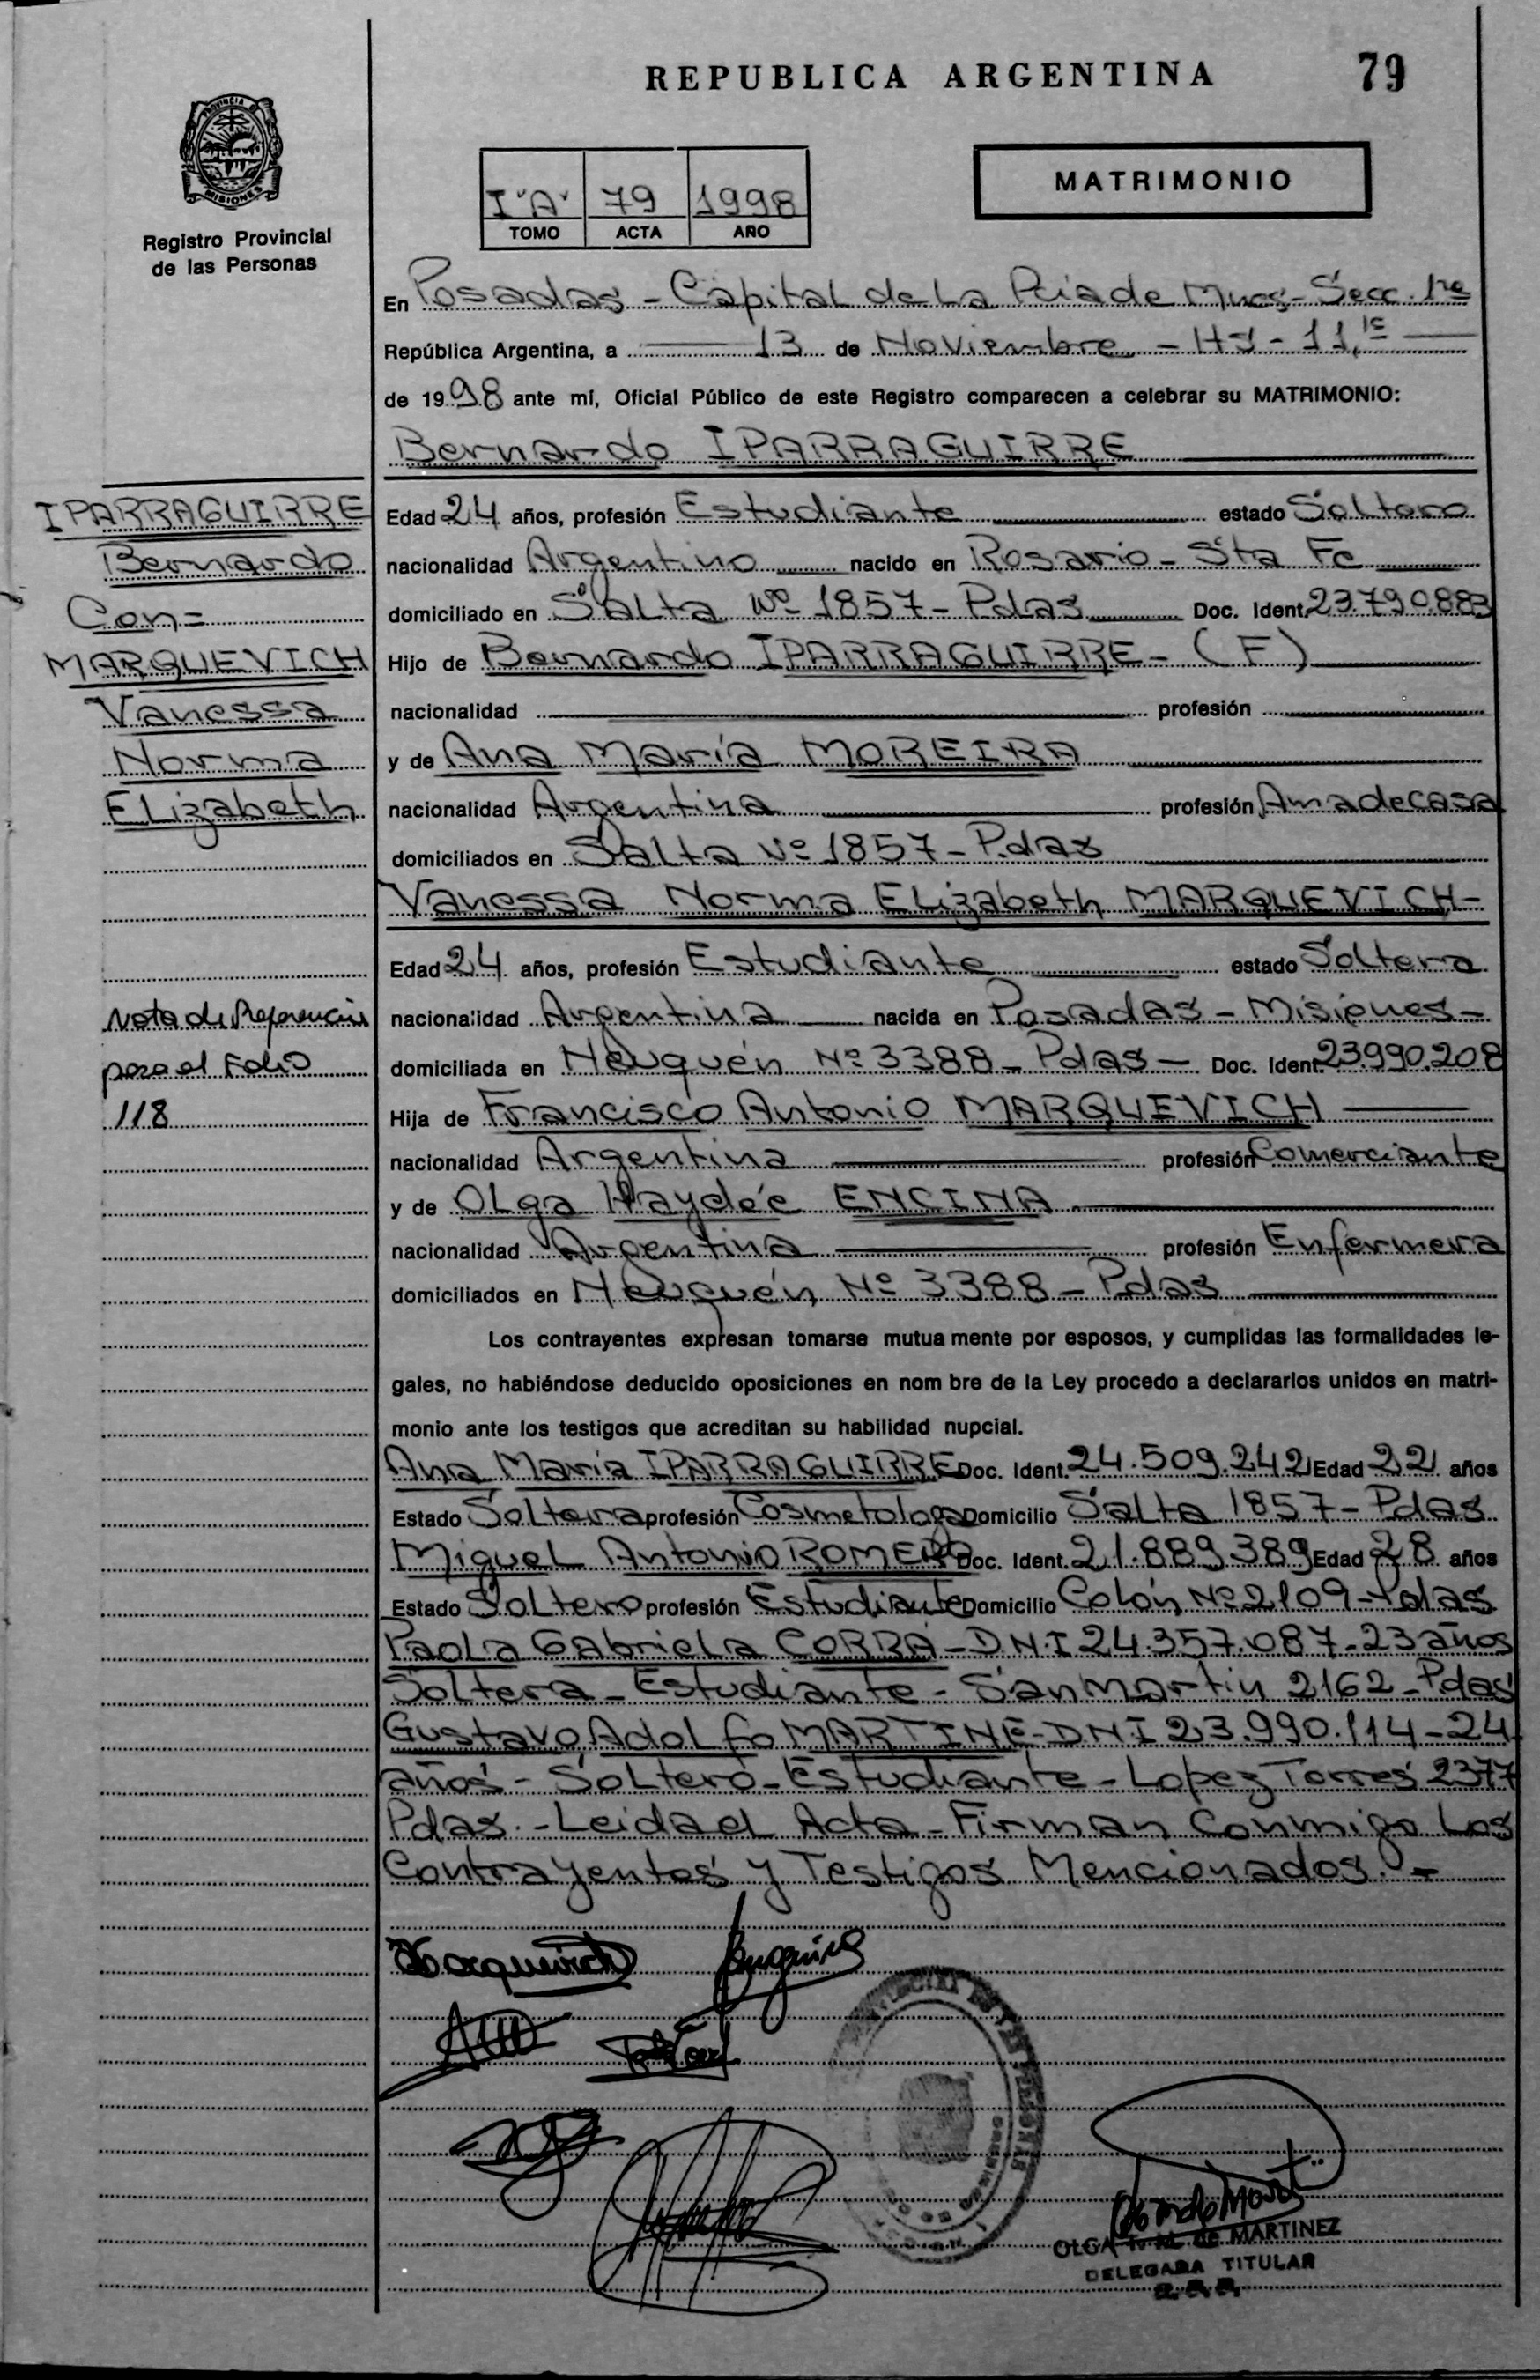 REPUBLICA ARGENTINA 79
PROVINCIA DE
MISIONES
Registro Provincial
de las Personas
I "A" 79 1998
TOMO ACTA AÑO
MATRIMONIO
En Posadas - Capital de La Pcia de Mnes - Secc. 1ra
República Argentina, a 13 de Noviembre - HS - 11,15
de 1998 ante mí, Oficial Público de este Registro comparecen a celebrar su MATRIMONIO:
Bernardo IPARRAGUIRRE
IPARRAGUIRRE
Bernardo
Con =
MARQUEVICH
Vanessa
Norma
ELizabeth
Nota de Referencia
pase al Folio
118
Edad 24 años, profesión Estudiante estado Soltero
nacionalidad Argentino nacido en Rosario - Sta Fe
domiciliado en Salta Nº 1857 - Pdas Doc. Ident. 23.790.883
Hijo de Bernardo IPARRAGUIRRE - (F)
nacionalidad profesión
y de Ana María MOREIRA
nacionalidad Argentina profesión Ama de casa
domiciliados en Salta Nº 1857 - Pdas
Vanessa Norma ELizabeth MARQUEVICH -
Edad 24 años, profesión Estudiante estado Soltera
nacionalidad Argentina nacida en Posadas - Misiones -
domiciliada en Neuquén Nº 3388 - Pdas - Doc. Ident. 23.990.208
Hija de Francisco Antonio MARQUEVICH
nacionalidad Argentina profesión Comerciante
y de OLga Haydée ENCINA
nacionalidad Argentina profesión Enfermera
domiciliados en Neuquén Nº 3388 - Pdas
Los contrayentes expresan tomarse mutua mente por esposos, y cumplidas las formalidades le-
gales, no habiéndose deducido oposiciones en nom bre de la Ley procedo a declararlos unidos en matri-
monio ante los testigos que acreditan su habilidad nupcial.
Ana María IPARRAGUIRRE Doc. Ident. 24.509.242 Edad 22 años
Estado Soltera profesión Cosmetologa Domicilio Salta 1857 - Pdas
Miguel Antonio ROMERO Doc. Ident. 21.889.389 Edad 28 años
Estado Soltero profesión Estudiante Domicilio Colón Nº 2109 - Pdas
Paola Gabriela CORRA - D.N.I 24.357.087 - 23 años
Soltera - Estudiante - San Martin 2162 - Pdas
Gustavo Adolfo MARTINE - DNI 23.990.114 - 24
años - Soltero - Estudiante - Lopez Torres 2377
Pdas. - Leida el Acta - Firman Conmigo Los
Contrayentes y Testigos Mencionados. -
OLGA de MARTINEZ
DELEGADA TITULAR